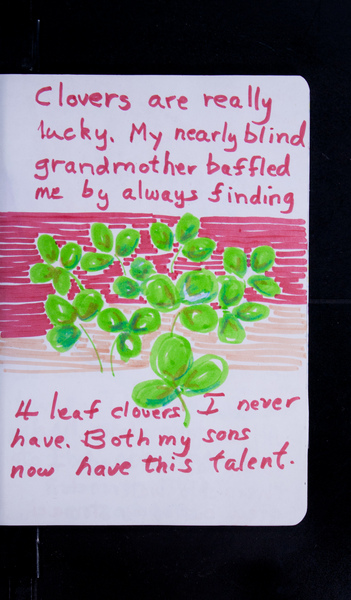 Clovers are really
lucky. My nearly blind
grandmother baffled
me by always finding
4 leaf clovers, I never
have. Both my sons
now have this talent.